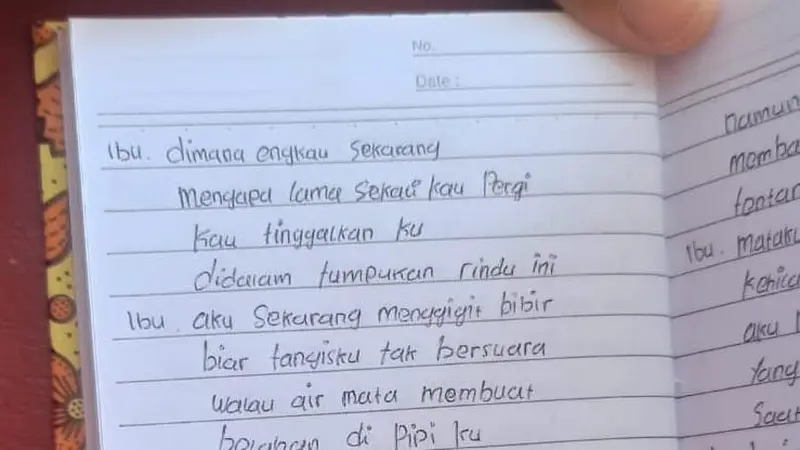 No.
Date:
Ibu. dimana engkau sekarang
mengapa lama sekali kau Pergi
kau tinggalkan ku
didalam tumpukan rindu ini
Ibu. aku sekarang menggigit bibir
biar tangisku tak bersuara
walau air mata membuat
di Pipi ku
namun
memba
lontar
Ibu. mataku
aku
Yang
Saat